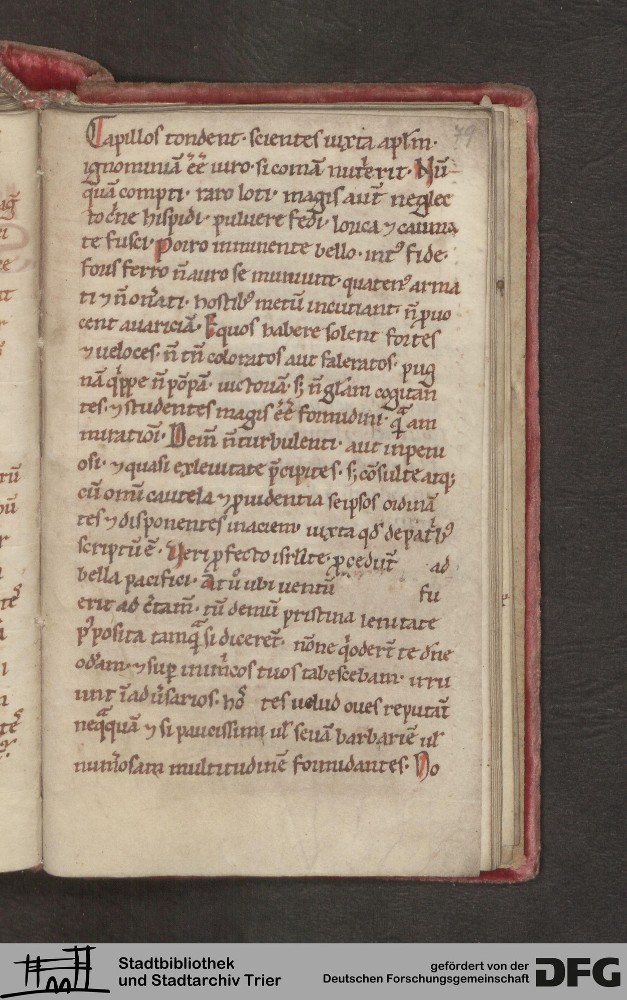 Capillos tondent· scientes iuxta aplm·
ignominiā eē̄ uiro· si comā nutrierit· Nū
quā compti· raro loti· magis aut̄ neglec
to crine hispidi· puluere fedi· lorica ⁊ caumā
te fusci· Porro imminente bello· int᷒ fide·
foris ferro n̄ auro se muniunt· quaten᷒ arma
ti ⁊ n̄ ornati· hostib᷒ metū incutiant· n̄ ꝓuo
cent auariciā· Equos habere solent fortes
⁊ ueloces· n̄ tn̄ coloratos aut faleratos· pug
nā q̇ppe n̄ pōpā· uictoriā· sꝫ n̄ glām cogitan
tes· ⁊ studentes magis eē̄ formidini· quā am
mirationi· Dein n̄ turbulenti· aut inpetu
osi· ⁊ quasi ex leuitate p̄cipites· sꝫ cōsulte atqꝫ
cū omni cautela ⁊ ꝓuidentia seipsos ordinā
tes ⁊ disponentes in aciem iuxta qd̄ de patrib᷒
scriptū ē· Veri ꝓfecto isrl̄ite· ꝓcedunt ad
bella pacifici· At ů ubi uentū fu
erit ad c̄tam̄· tū demū pristina lenitate
p᷒posita tamquā si dicerent· nōne q̇ oder̄t te dn̄e
oderam· ⁊ super inimicos tuos tabescebam· irru
unt ī aduersarios· hos tes uelud oues reputāt
nequaquā ⁊ si paucissimi ul̄ seuā barbariē ul̄
numerosam multitudinē formidantes· No
79
Stadtbibliothek
und Stadtarchiv Trier
gefördert von der
Deutschen Forschungsgemeinschaft
DFG